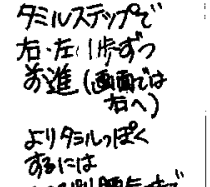 タミルステップで
右・左1歩ずつ
前進(画面では
右へ)
よりタミルっぽく
するには